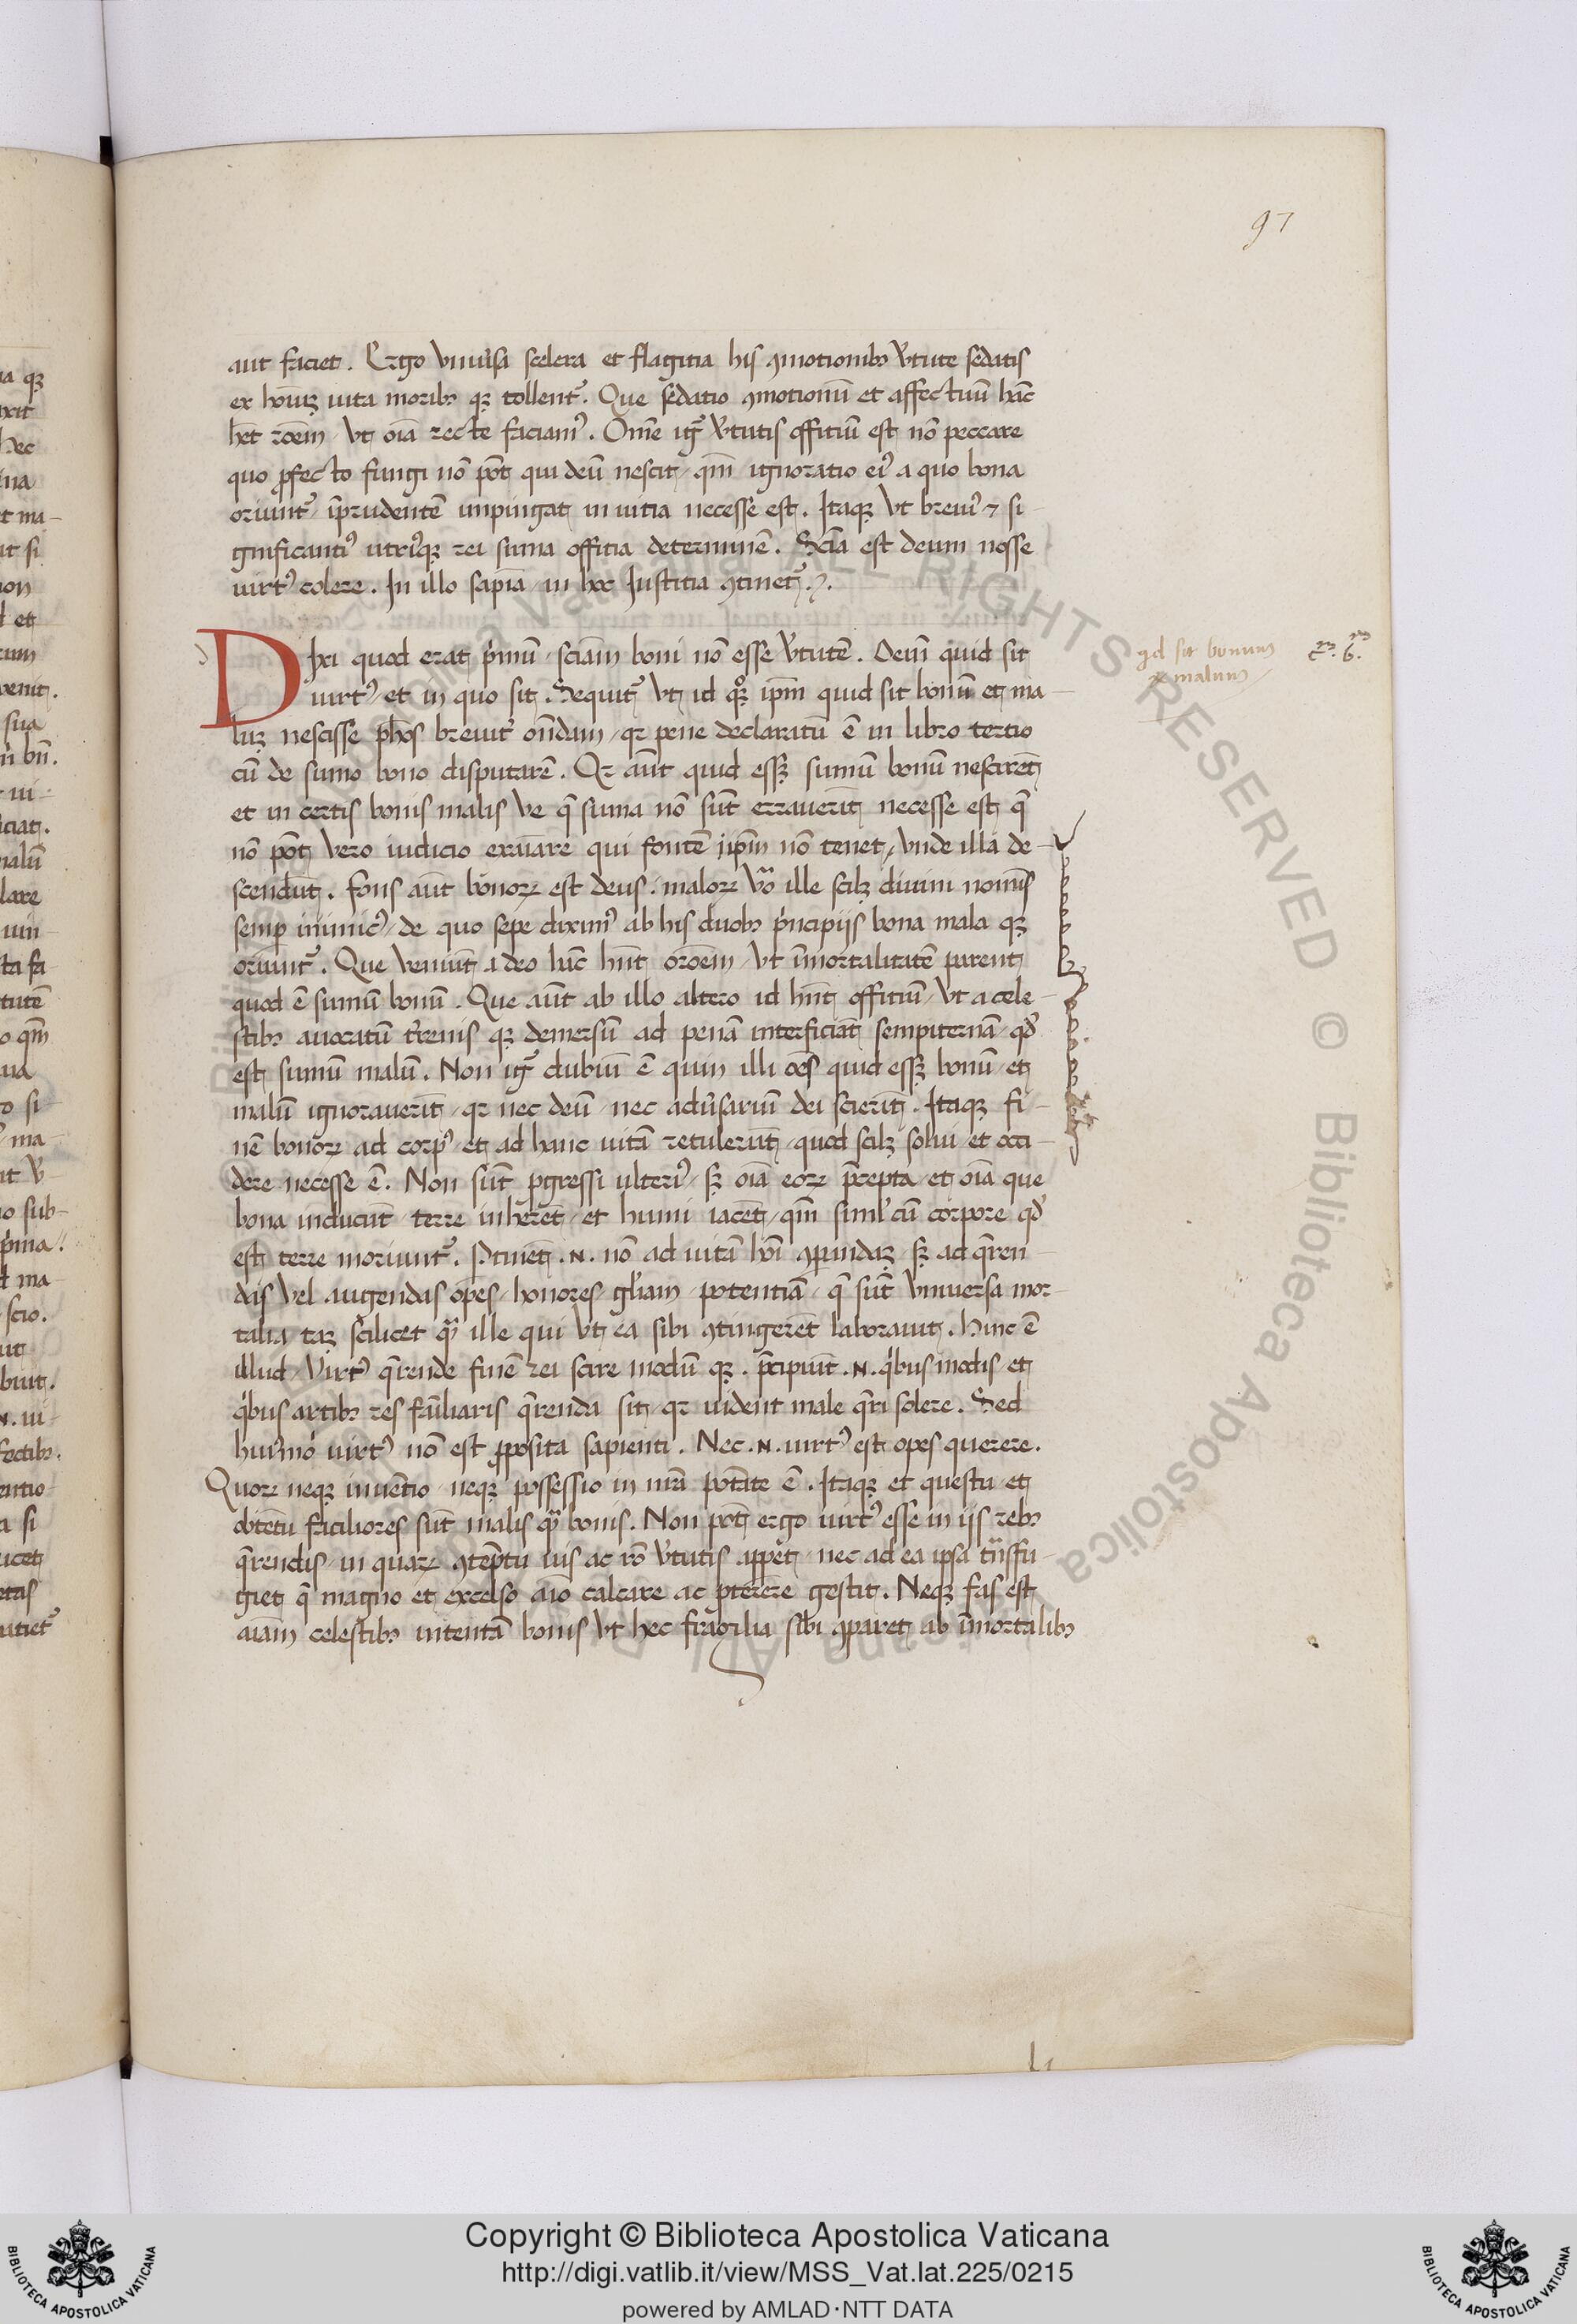 97
aut faciet. Ergo vniu᾽sa scelera et flagitia his ꝯmotionibꝫ v᾽tute sedatis
ex hoīuꝫ uita moribꝫ qꝫ tollent᾽. Que sedatio ꝯmotionū et affectuū hāc
hēt rōem vt oīa recte faciamꝰ. Om̄e igr̄ v᾽tutis offitiū est nō peccare
quo ꝓfecto fungi nō pōt qui deū nescit, qm̄ ignoratio eiꝰ a quo bona
oriunt᾽ īprudentē impingat in uitia necesse est. Itaqꝫ vt breuiꝰ ⁊ si
gnificantiꝰ utriꝰqꝫ rei suma offitia determinē. Scīa est deum nosse
uirtꝰ colere. In illo sapīa, in hoc Iustitia ꝯtinet᾽.
Dixi quod erat p᾽mū, sciām boni nō esse v᾽tutē. Dein̄ quid sit
uirtꝰ, et in quo sit. Sequit᾽ vt id qꝫ ip̄m quid sit bonū et ma
luꝫ nescisse ph̄os breuit᾽ on̄dam, qꝛ pene declaratū ē in libro tertio
cū de sumo bono disputarē. Qꝛ aūt quid essꝫ sumū bonū nescirēt
et in certis bonis malis ve q̄ suma nō sūt errauerīt necesse est q̄
nō pōt vero iudicio exaīare qui fontē ip̄m nō tenet, vnde illa de
scendūt. Fons aūt bonoꝝ est deus. maloꝝ v᾽o ille scilꝫ diuini nomīs
semp̄ inimicꝰ, de quo sepe diximꝰ ab his duobꝫ p᾽ncipijs bona mala qꝫ
oriunt᾽. Que veniūt a deo hāc hn̄t orōem, vt īmortalitatē parent
quod ē sumū bonū. Que aūt ab illo altero id hn̄t offitiū, vt a cele
stibꝫ auocatū t᾽renis qꝫ demersū ad penā interficiāt sempiternā, qd᾽
est sumū malū. Non igr̄ dubiū ē quin illi oēs quid essꝫ bonū et
malū ignorauerīt, qꝛ nec deū, nec adu᾽sariū dei scierīt. Itaqꝫ fi
nē bonoꝝ ad corpꝰ et ad hanc uitā retulerūt, quod scilꝫ solui et occi
dere necesse ē. Non sūt ꝓgressi ulteriꝰ, sꝫ oīa eoꝝ p̄cepta et oīa que
bona inducūt terre inherēt, et humi iacēt, qm̄ simul cū corpore qd᾽
est terre moriunt᾽. Ptinēt .N. nō ad uitā hoī ꝯparandaꝫ, sꝫ ad q̄ren
das vel augendas opes, honores gl᾽iam, potentiā, q̄ sūt vniuersa mor
talia, taꝫ scilicet qꝫ ille qui vt ea sibi ꝯtingerēt laborauit. Hinc ē
illud, Virtꝰ q̄rende finē rei scire modū qꝫ. p̄cipiūt .N. q᾽bus modis et
q᾽bus artibꝫ res fam̄iliaris q̄renda sit, qꝛ uident male q̄ri solere. Sed
huiꝰmōi uirtꝰ nō est ꝓposita sapienti. Nec .N. uirtꝰ est opes querere.
Quoꝝ neqꝫ inuētio neqꝫ possessio in nrā potāte ē. Itaqꝫ et questu et
obtētu faciliores sūt malis qꝫ bonis. Non pōt ergo uirtꝰ esse in ijs rebꝫ
q̄rendis, in quaꝝ ꝯtēptu uis ac rō v᾽tutis appet, nec ad ea ipsa trāsfu
giet q̄ magno et excelso aīo calcare ac ꝓterere gestit. Neqꝫ fas est
aīam celestibꝫ intentā bonis vt hec fragilia sibi ꝯparet ab īmortalibꝫ
qd sit bonum
⁊ malum